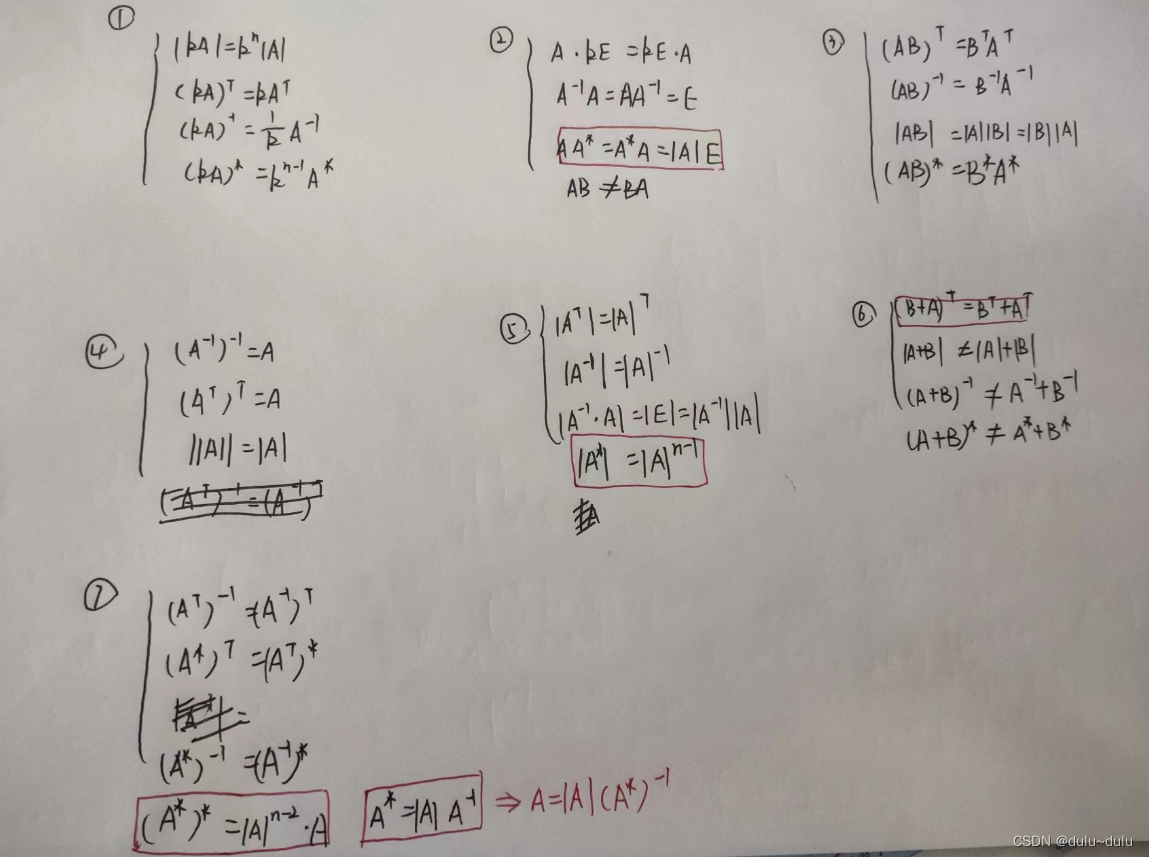 ①
|kA|=kⁿ|A|
(kA)ᵀ=kAᵀ
(kA)⁻¹=1/k A⁻¹
(kA)*=kⁿ⁻¹A*
②
A·kE=kE·A
A⁻¹A=AA⁻¹=E
AA*=A*A=|A|E
AB≠BA
③
(AB)ᵀ=BᵀAᵀ
(AB)⁻¹=B⁻¹A⁻¹
|AB|=|A||B|=|B||A|
(AB)*=B*A*
④
(A⁻¹)⁻¹=A
(Aᵀ)ᵀ=A
||A||=|A|
⑤
|Aᵀ|=|A|ᵀ
|A⁻¹|=|A|⁻¹
|A⁻¹·A|=|E|=|A⁻¹||A|
|A*|=|A|ⁿ⁻¹
⑥
(B+A)ᵀ=Bᵀ+Aᵀ
|A+B|≠|A|+|B|
(A+B)⁻¹≠A⁻¹+B⁻¹
(A+B)*≠A*+B*
⑦
(Aᵀ)⁻¹=(A⁻¹)ᵀ
(A*)ᵀ=(Aᵀ)*
(A*)⁻¹=(A⁻¹)*
(A*)*=|A|ⁿ⁻²·A
A*=|A|A⁻¹ ⇒ A=|A|(A*)⁻¹
CSDN @dulu~dulu